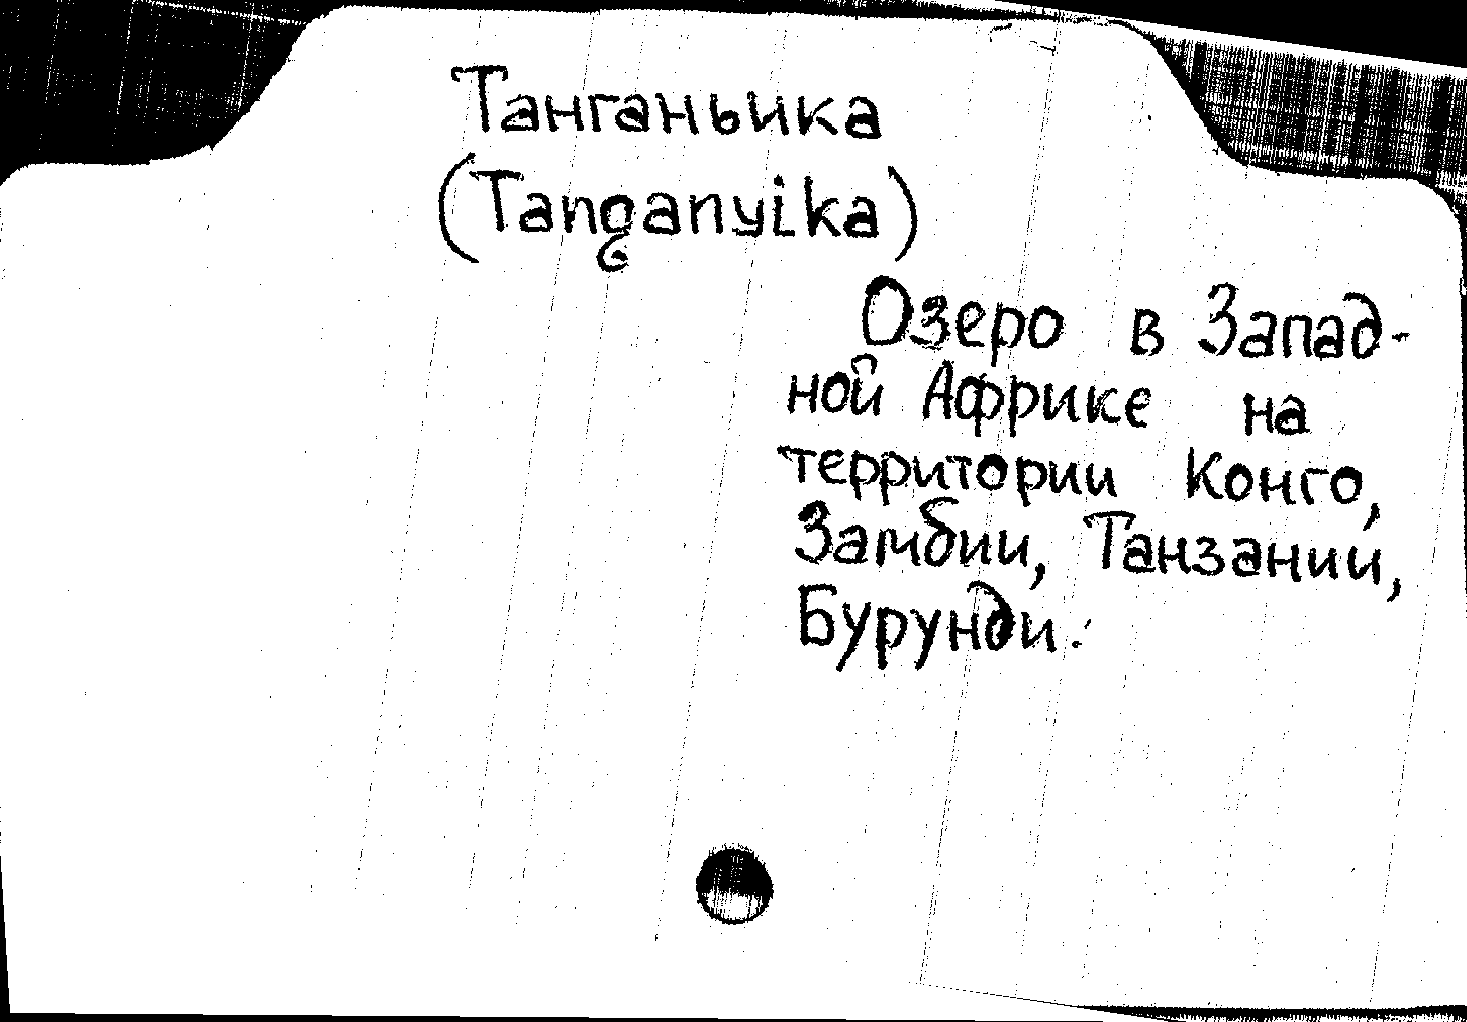 Танганьика
(Tanganyika)
Озеро в Запад-
ной Африке на
территории Конго,
Замбии, Танзании,
Бурунди.